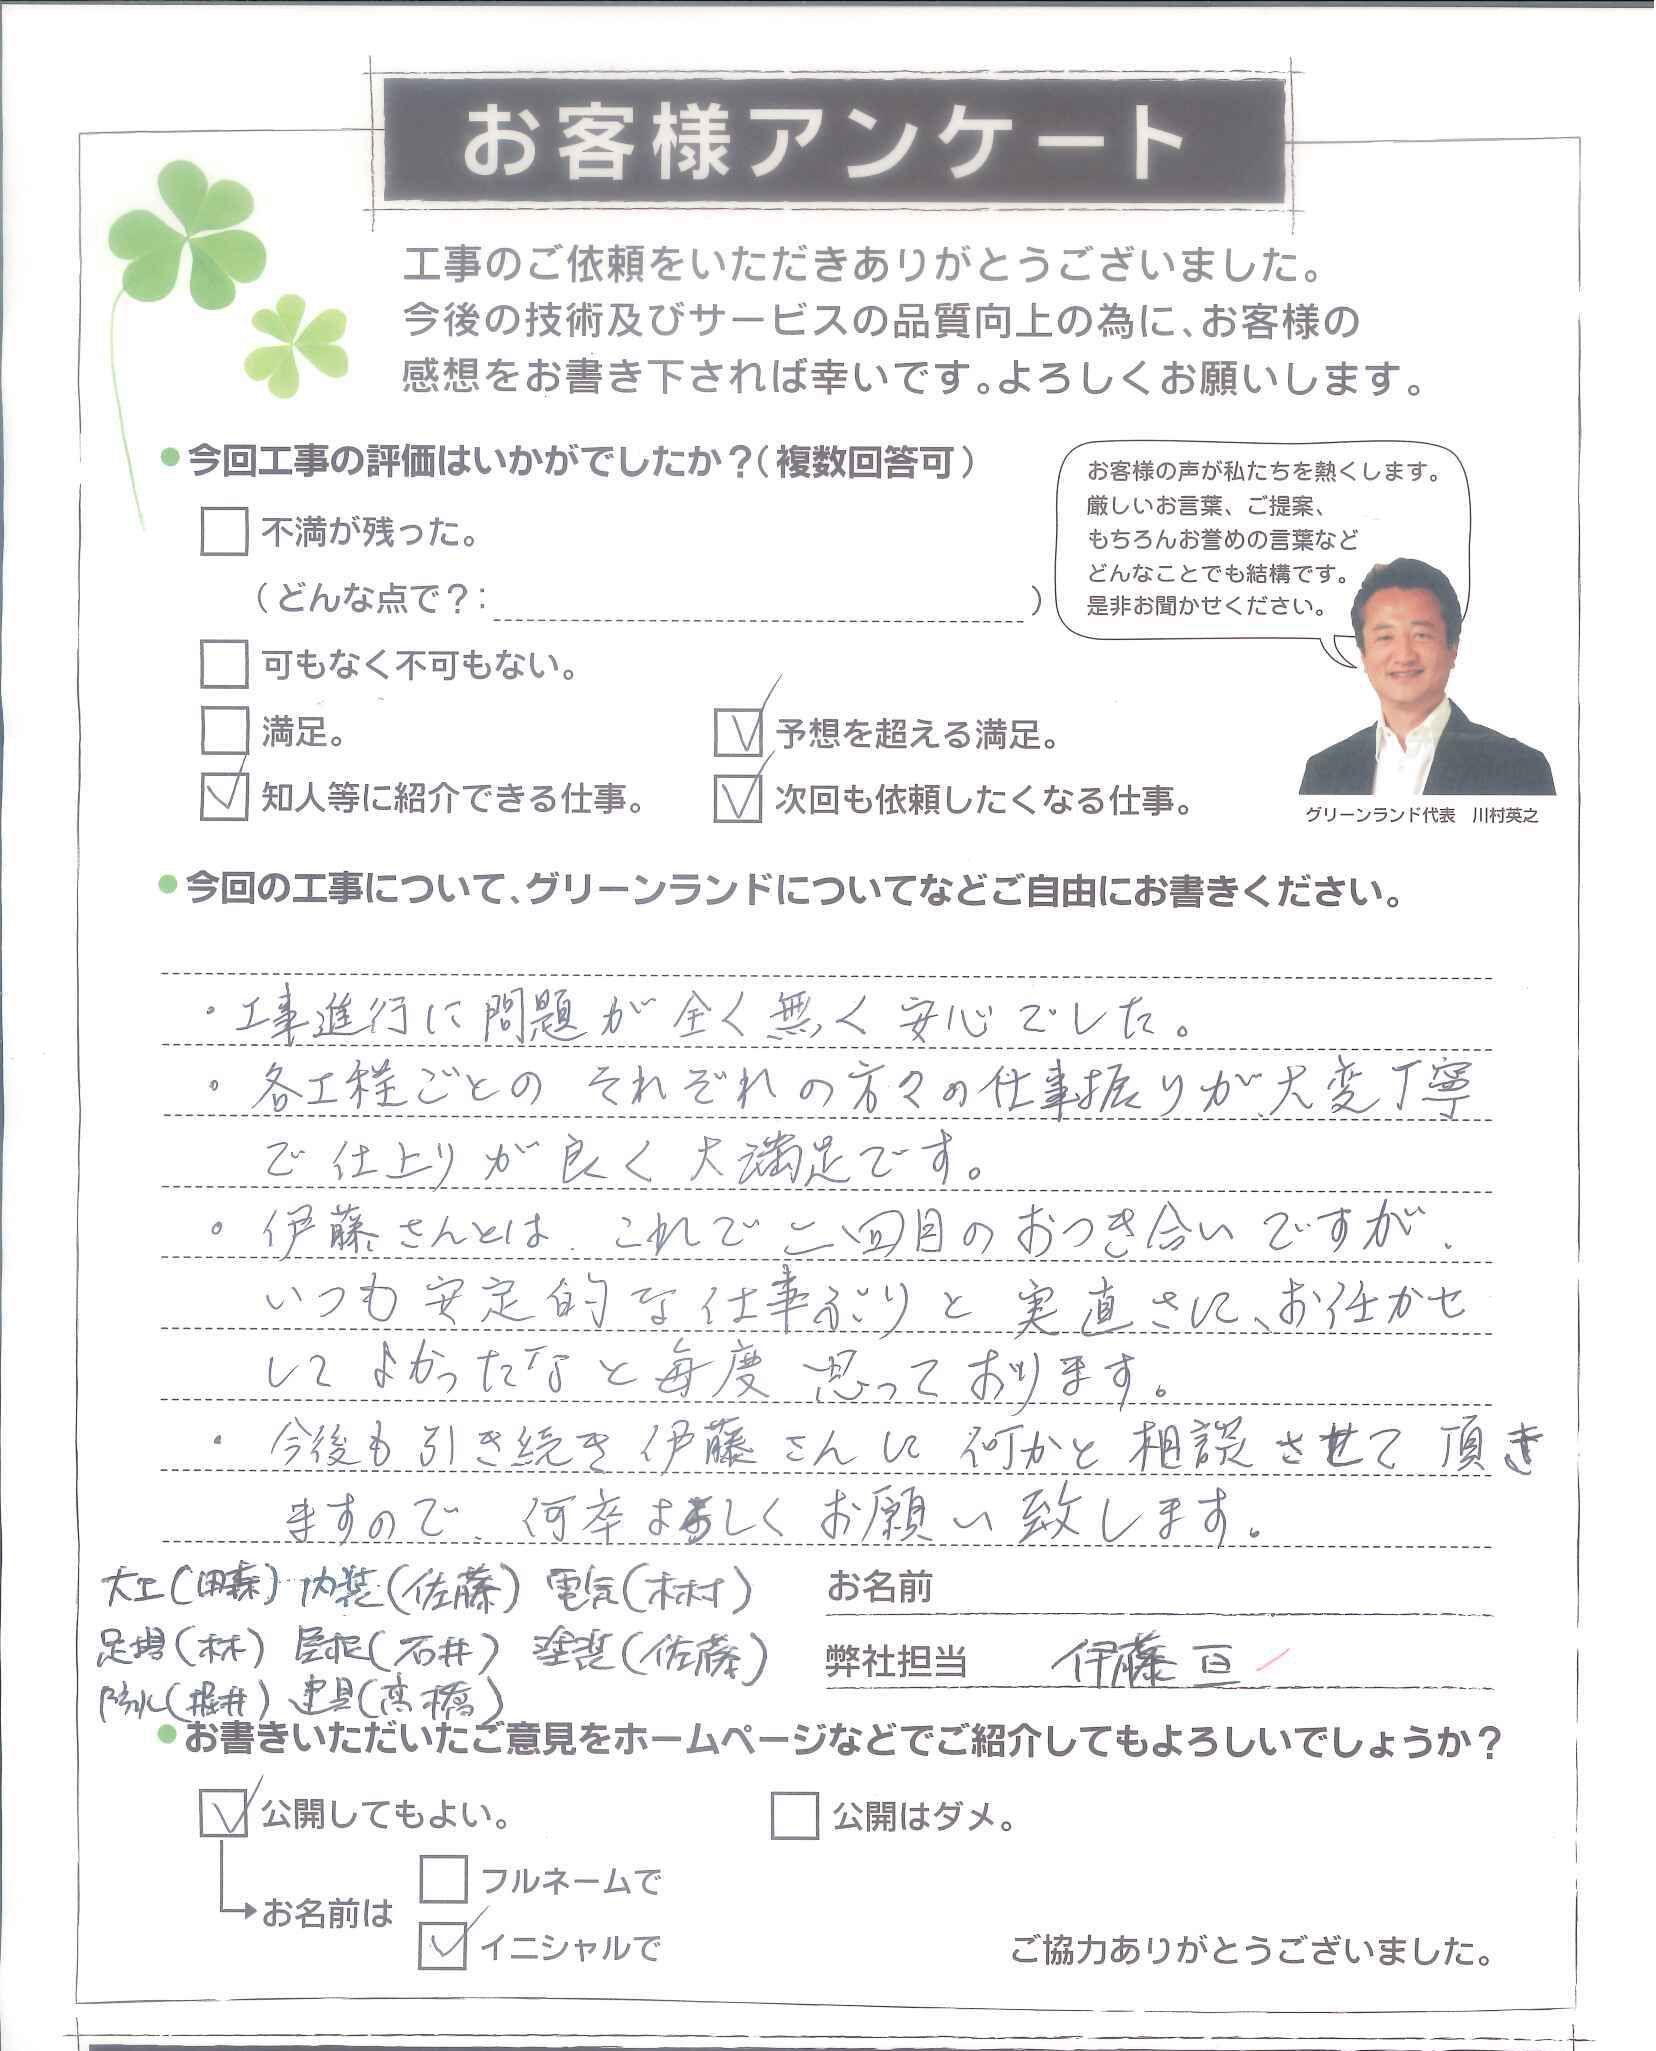 お客様アンケート
工事のご依頼をいただきありがとうございました。
今後の技術及びサービスの品質向上の為に、お客様の
感想をお書き下されば幸いです。よろしくお願いします。
●今回工事の評価はいかがでしたか？（複数回答可）
不満が残った。
（どんな点で？：　）
可もなく不可もない。
満足。
予想を超える満足。
知人等に紹介できる仕事。
次回も依頼したくなる仕事。
お客様の声が私たちを熱くします。
厳しいお言葉、ご提案、
もちろんお誉めの言葉など
どんなことでも結構です。
是非お聞かせください。
グリーンランド代表　川村英之
●今回の工事について、グリーンランドについてなどご自由にお書きください。
・工事進行に問題が全く無く安心でした。
・各工程ごとのそれぞれの方々の仕事振りが、大変丁寧
で仕上りが良く大満足です。
・伊藤さんとは、これで回目のおつき合いですが、
いつも安定的な仕事ぶりと実直さに、お任かせ
してよかったなと毎度思っております。
・今後も引き続き伊藤さんに何かと相談させて頂き
ますので、何卒よろしくお願い致します。
大工（田森）内装（佐藤）電気（木村）
足場（林）屋根（石井）塗装（佐藤）
防水（堀井）建具（高橋）
お名前
弊社担当　伊藤亘
●お書きいただいたご意見をホームページなどでご紹介してもよろしいでしょうか？
公開してもよい。
公開はダメ。
お名前は
フルネームで
イニシャルで
ご協力ありがとうございました。